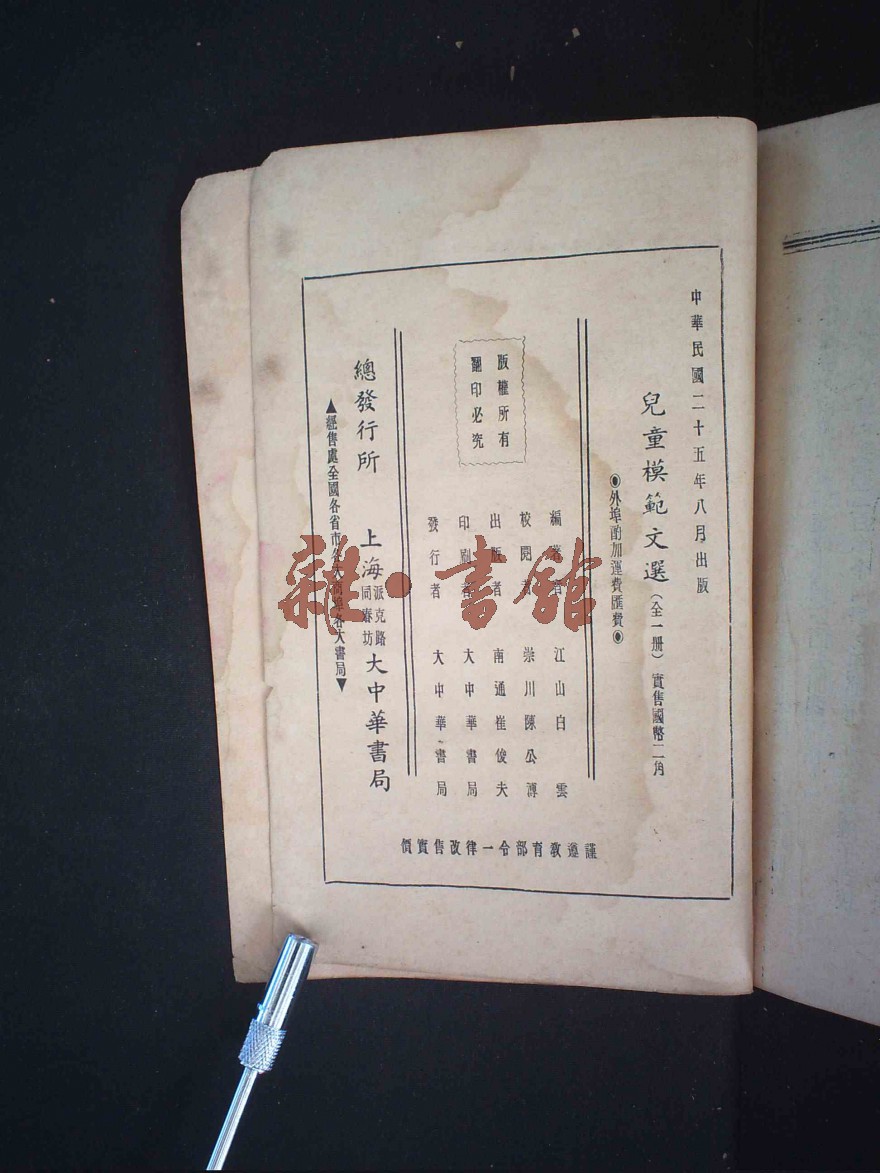 中華民國二十五年八月出版
兒童模範文選（全一册）實售國幣二角
◉外埠酌加運費匯費◉
版權所有
翻印必究
編著者　江山白雲
校閱者　崇川陳公溥
出版者　南通崔俊夫
印刷者　大中華書局
發行者　大中華書局
總發行所　上海派克路同春坊大中華書局
▲經售處全國各省市各大商埠各大書局▼
謹遵教育部令一律改售實價
雜·書館